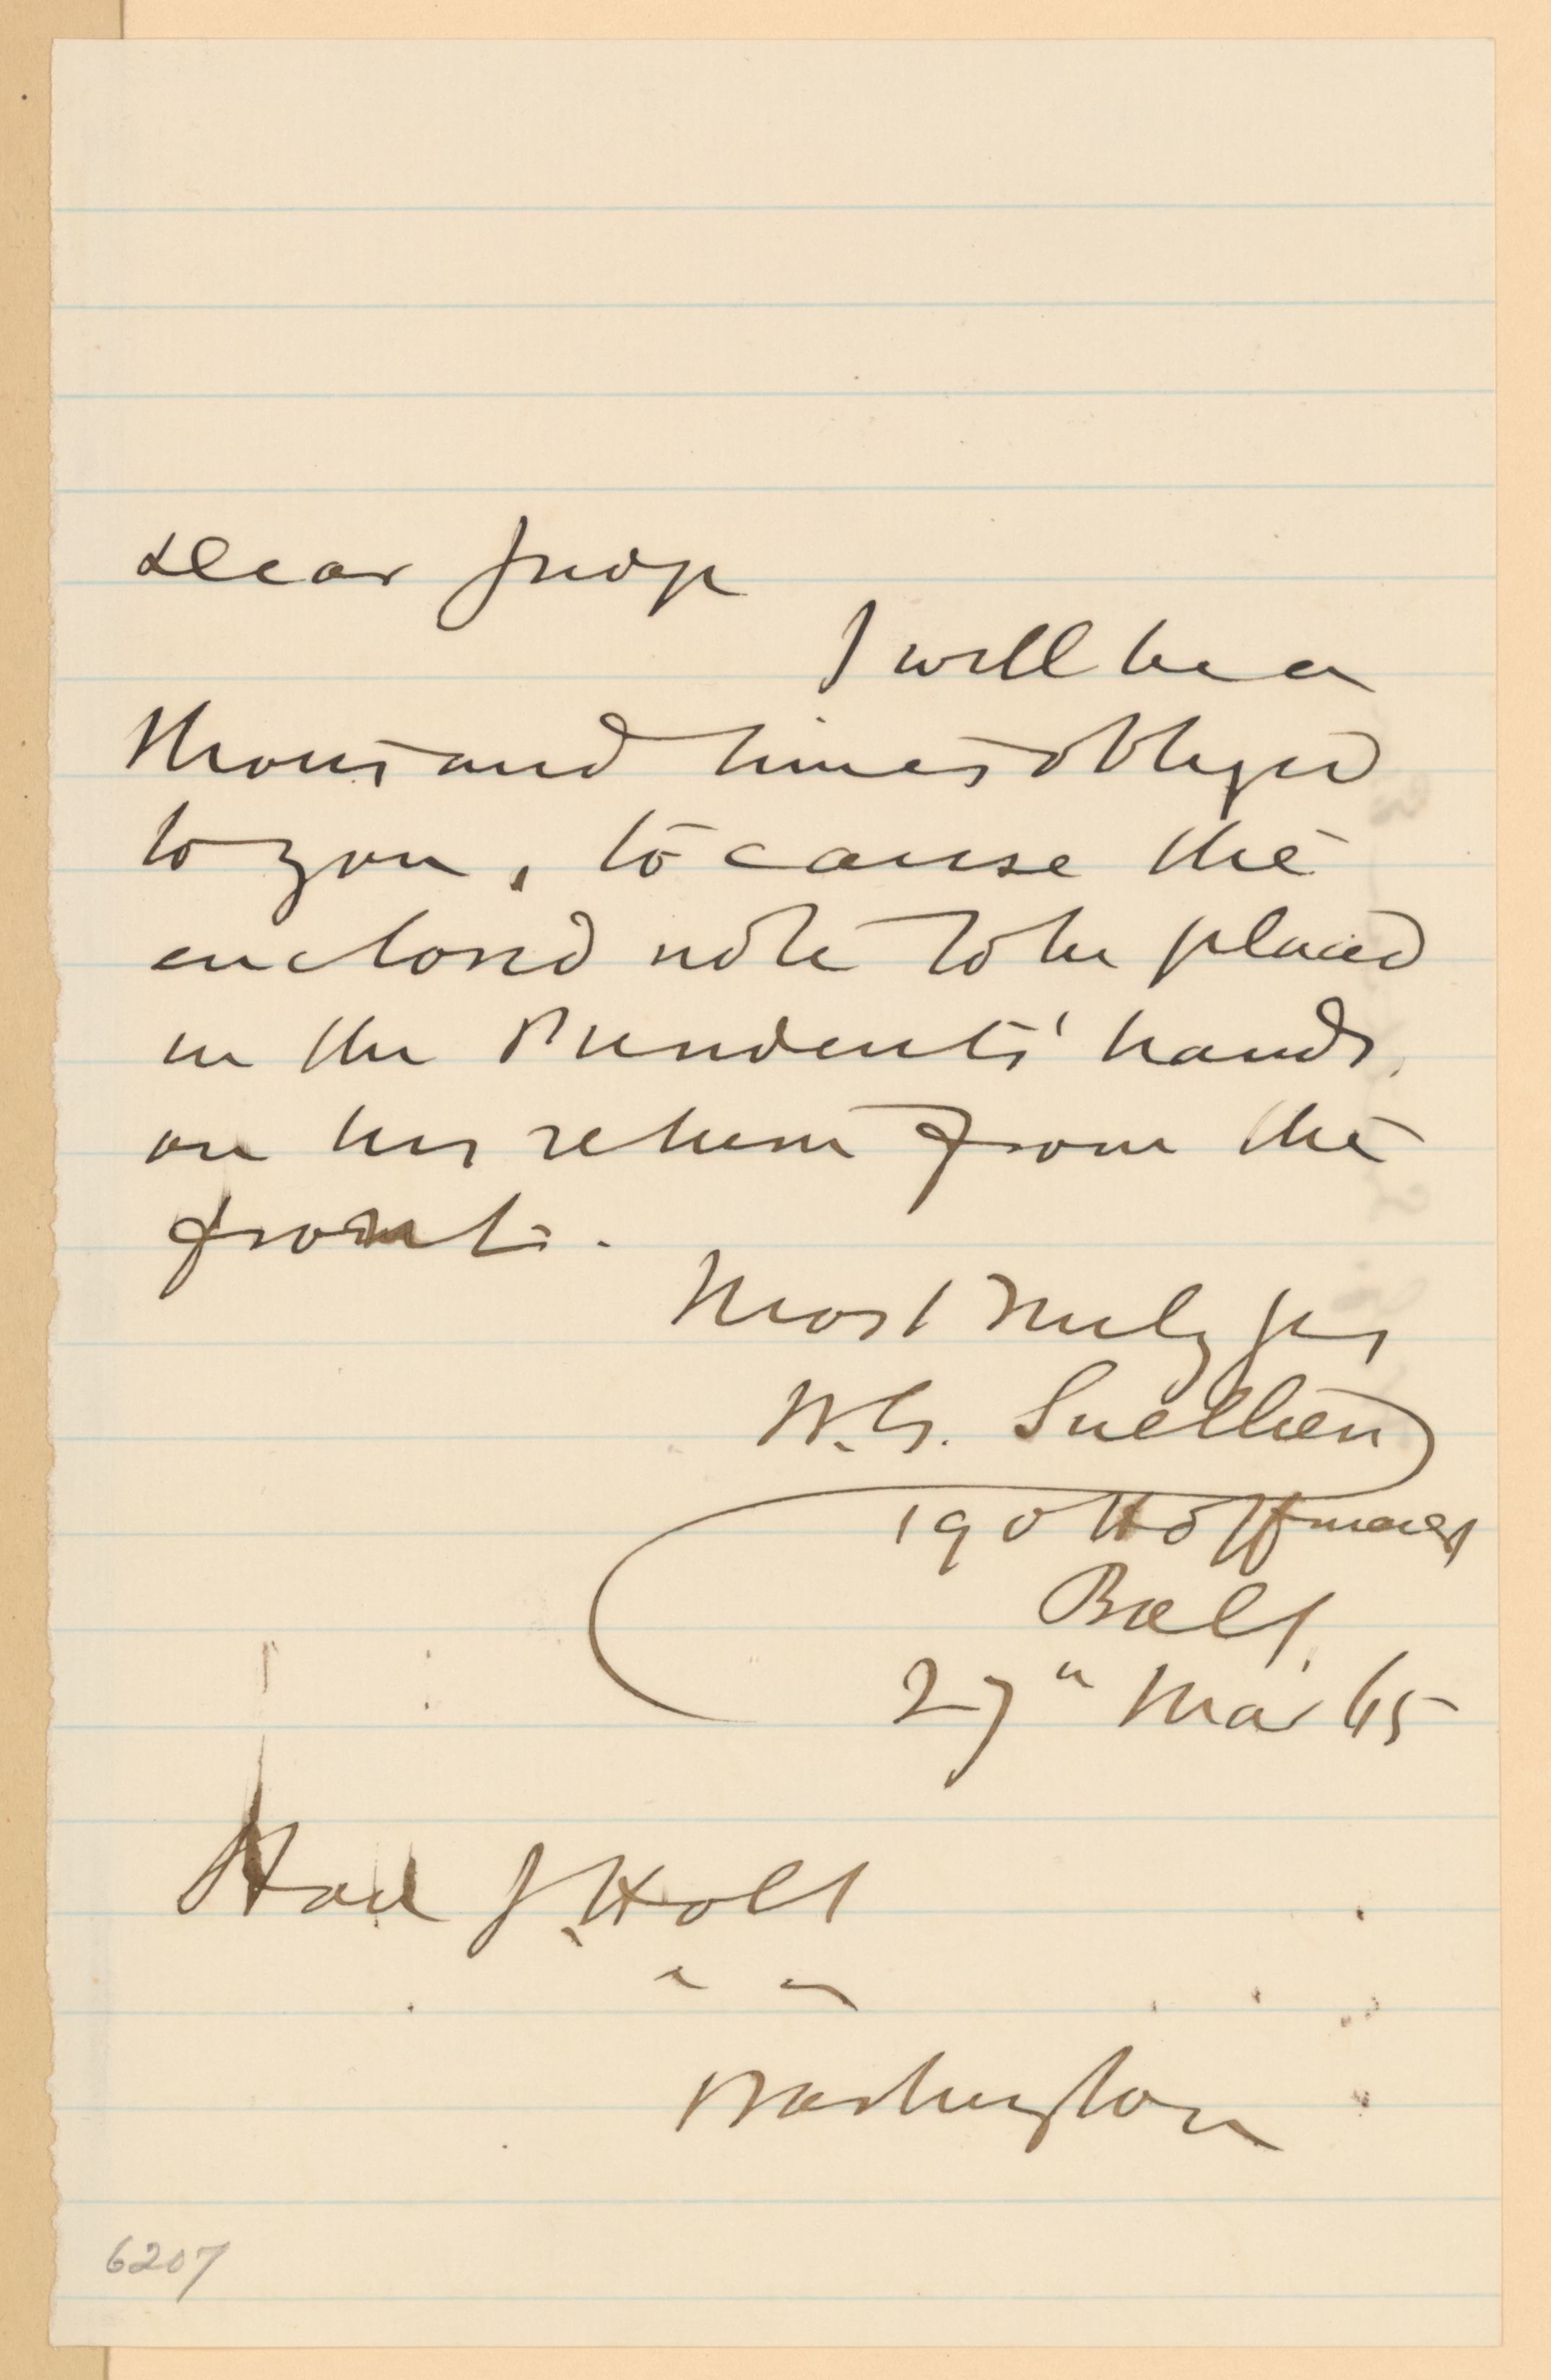 Dear Judge
I will be a
thousand times obliged
to you, to cause the
enclosed note to be placed
in the Presidents' hands,
on his return from the
front.
Most truly yrs
W. G. Snethen
190 Hoffman St
Balt.
27" Mar 65
Hon J. Holt
Washington
6207